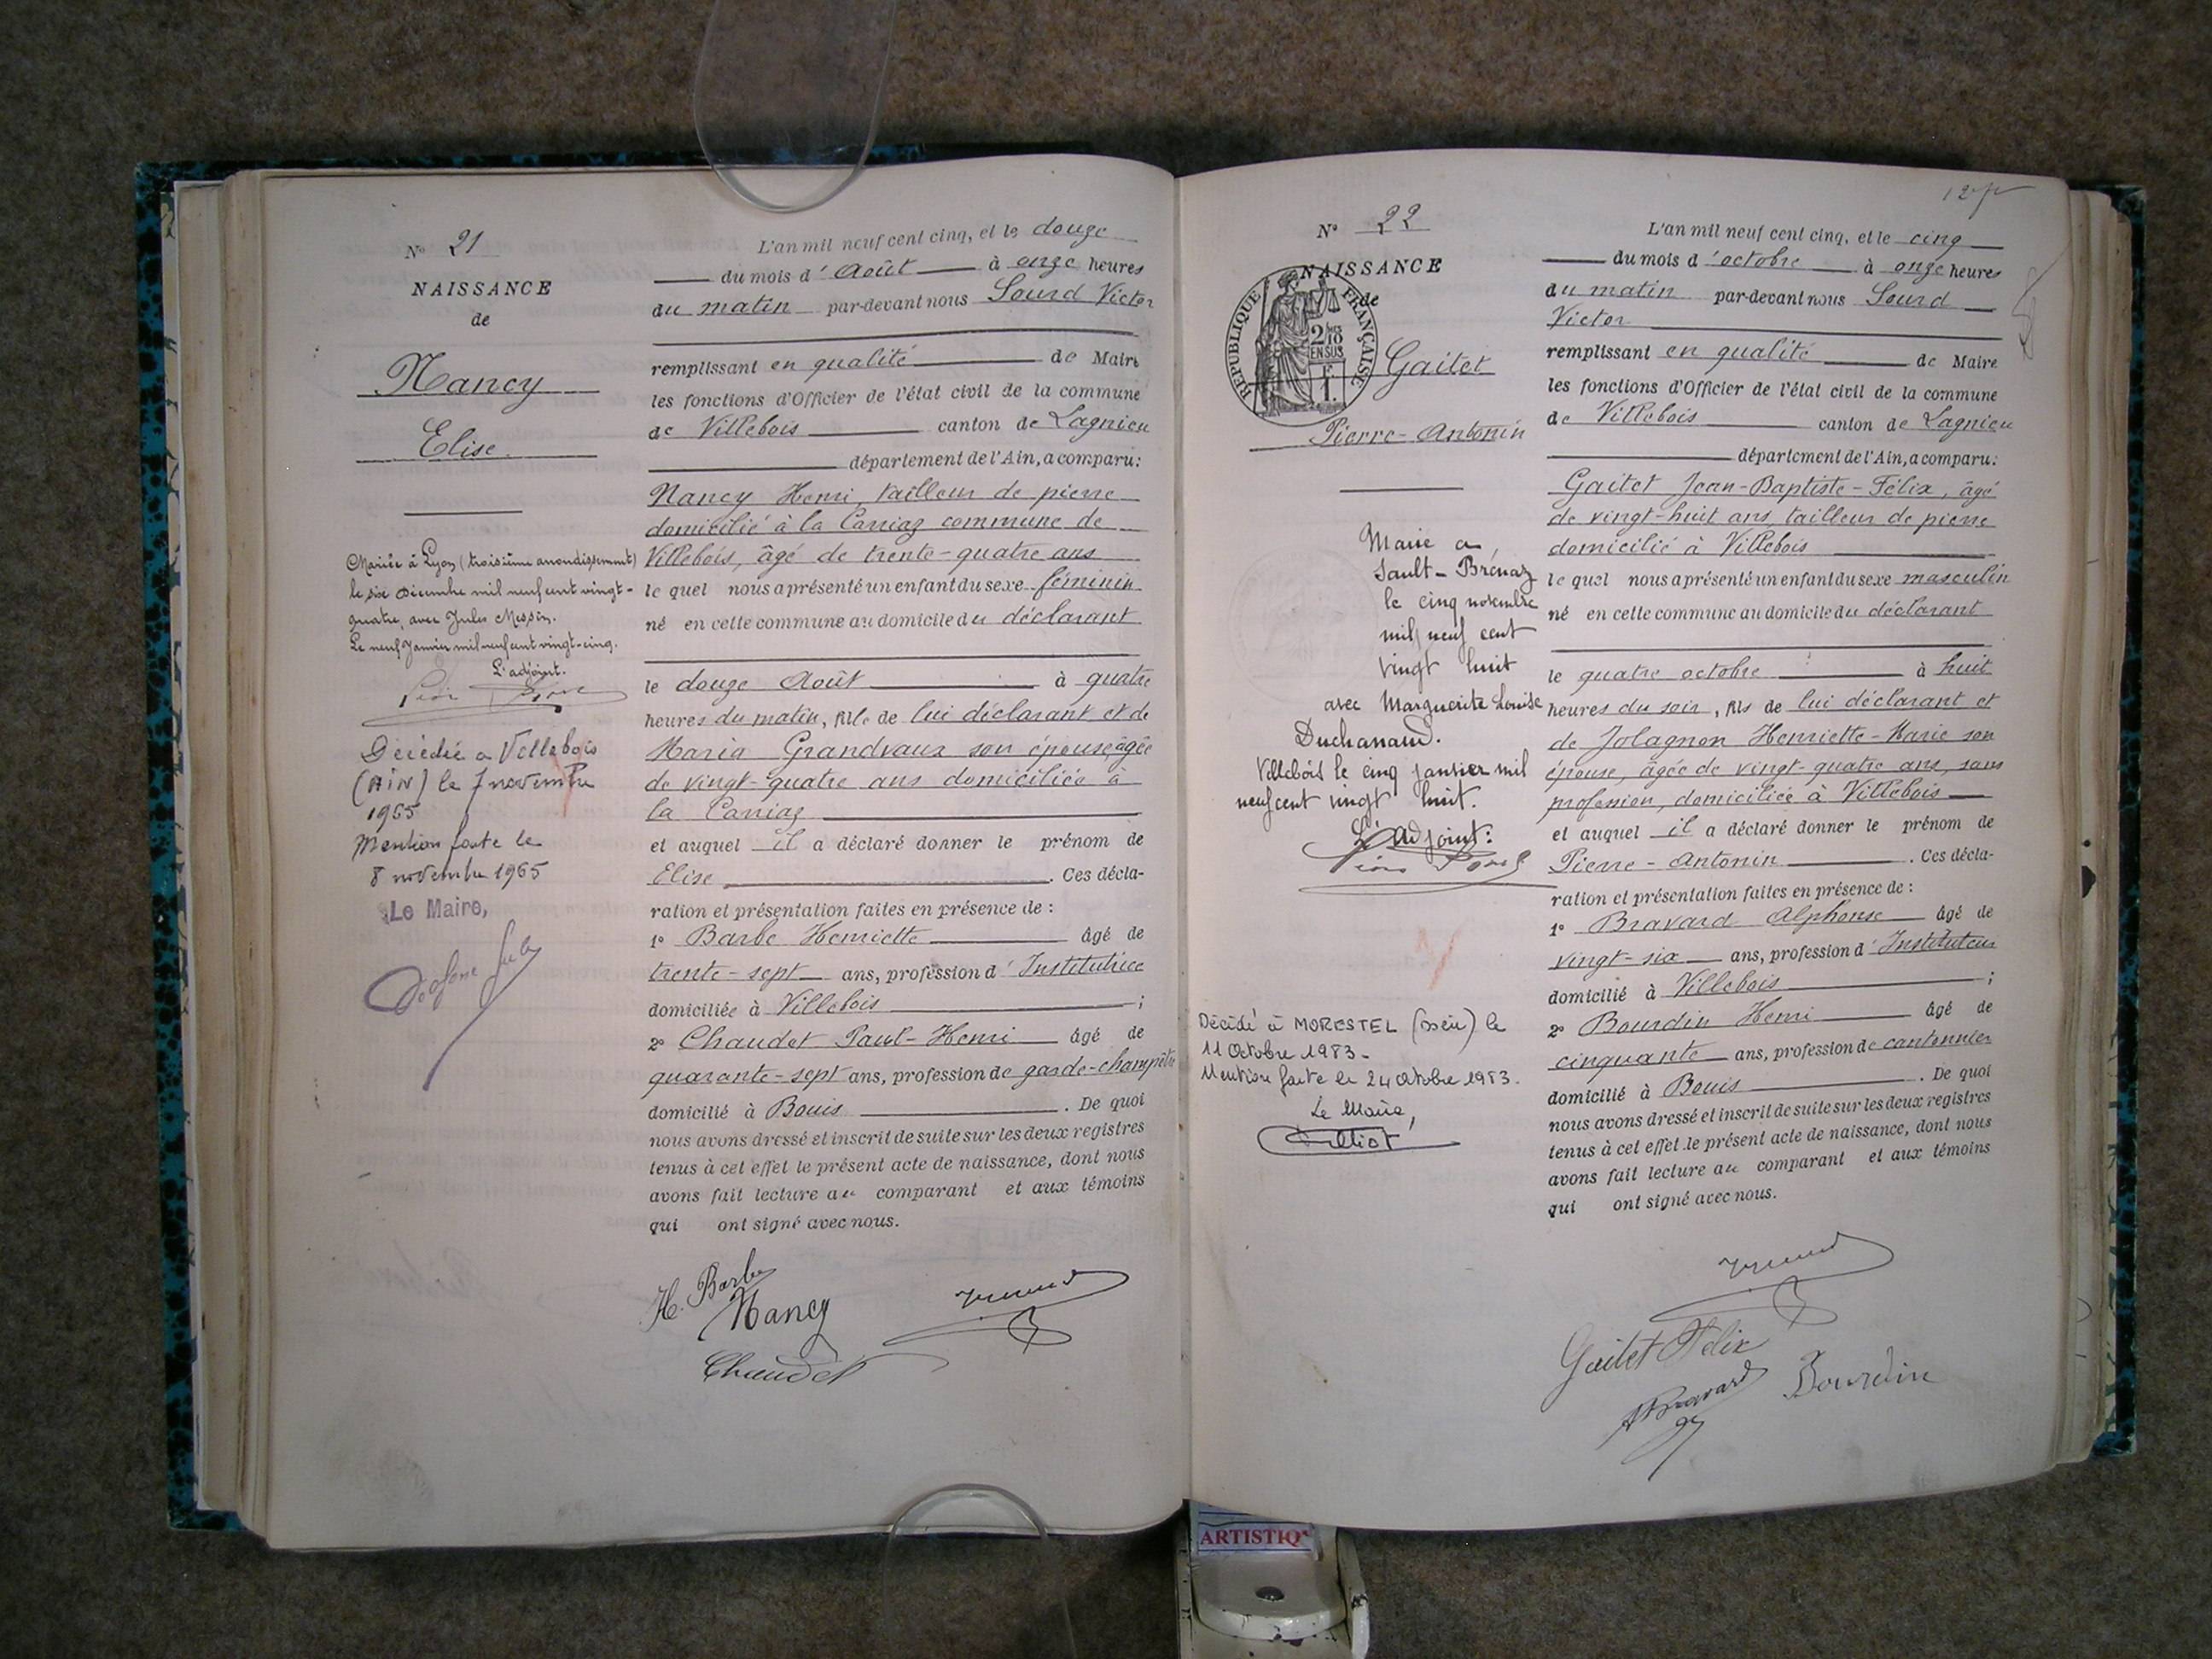 N° 21
NAISSANCE
de
Nancy
Elise
Mariée à Lyon (troisième arrondissement)
le six Décembre mil neuf cent vingt-
quatre, avec Jules Messin.
Le neuf Janvier mil neuf cent vingt-cinq.
L'adjoint.
Décédée à Villebois
(AIN) le 7 novembre
1965
Mention faite le
8 novembre 1965
Le Maire,
L'an mil neuf cent cinq, et le douze
du mois d'Août à onze heures
du matin par-devant nous Sourd Victor
remplissant en qualité de Maire
les fonctions d'Officier de l'état civil de la commune
de Villebois canton de Lagnieu
département de l'Ain, a comparu:
Nancy Henri, tailleur de pierre
domicilié à la Carriaz commune de
Villebois, âgé de trente-quatre ans
le quel nous a présenté un enfant du sexe féminin
né en cette commune au domicile du déclarant
le douze Août à quatre
heures du matin, fille de lui déclarant et de
Maria Grandvaux son épouse, âgée
de vingt-quatre ans domiciliée à
la Carriaz
et auquel il a déclaré donner le prénom de
Elise. Ces décla-
ration et présentation faites en présence de :
1° Barbe Henriette âgé de
trente-sept ans, profession d'Institutrice
domiciliée à Villebois ;
2° Chaudet Paul-Henri âgé de
quarante-sept ans, profession de garde-champêtre
domicilié à Bouis. De quoi
nous avons dressé et inscrit de suite sur les deux registres
tenus à cet effet le présent acte de naissance, dont nous
avons fait lecture au comparant et aux témoins
qui ont signé avec nous.
H. Barbe
Nancy
Chaudet
127
N° 22
NAISSANCE
de
RÉPUBLIQUE FRANÇAISE
2/10
EN SUS
1F.
Gaitet
Pierre-Antonin
Marié à
Sault-Brénaz
le cinq novembre
mil neuf cent
vingt huit
avec Marguerite Louise
Duchanaud.
Villebois le cinq janvier mil
neuf cent vingt huit.
L'Adjoint:
Décédé à MORESTEL (Isère) le
11 Octobre 1983.
Mention faite le 24 octobre 1983.
Le Maire,
L'an mil neuf cent cinq, et le cinq
du mois d'octobre à onze heures
du matin par-devant nous Sourd
Victor
remplissant en qualité de Maire
les fonctions d'Officier de l'état civil de la commune
de Villebois canton de Lagnieu
département de l'Ain, a comparu:
Gaitet Jean-Baptiste-Félix, âgé
de vingt-huit ans, tailleur de pierre
domicilié à Villebois
le quel nous a présenté un enfant du sexe masculin
né en cette commune au domicile du déclarant
le quatre octobre à huit
heures du soir, fils de lui déclarant et
de Jolagnon Henriette-Marie son
épouse, âgée de vingt-quatre ans, sans
profession, domiciliée à Villebois
et auquel il a déclaré donner le prénom de
Pierre-Antonin. Ces décla-
ration et présentation faites en présence de :
1° Bravard Alphonse âgé de
vingt-six ans, profession d'Instituteur
domicilié à Villebois ;
2° Bourdin Henri âgé de
cinquante ans, profession de cantonnier
domicilié à Bouis. De quoi
nous avons dressé et inscrit de suite sur les deux registres
tenus à cet effet le présent acte de naissance, dont nous
avons fait lecture au comparant et aux témoins
qui ont signé avec nous.
Gaitet Félix
ABravard
Bourdin
ARTISTIQ